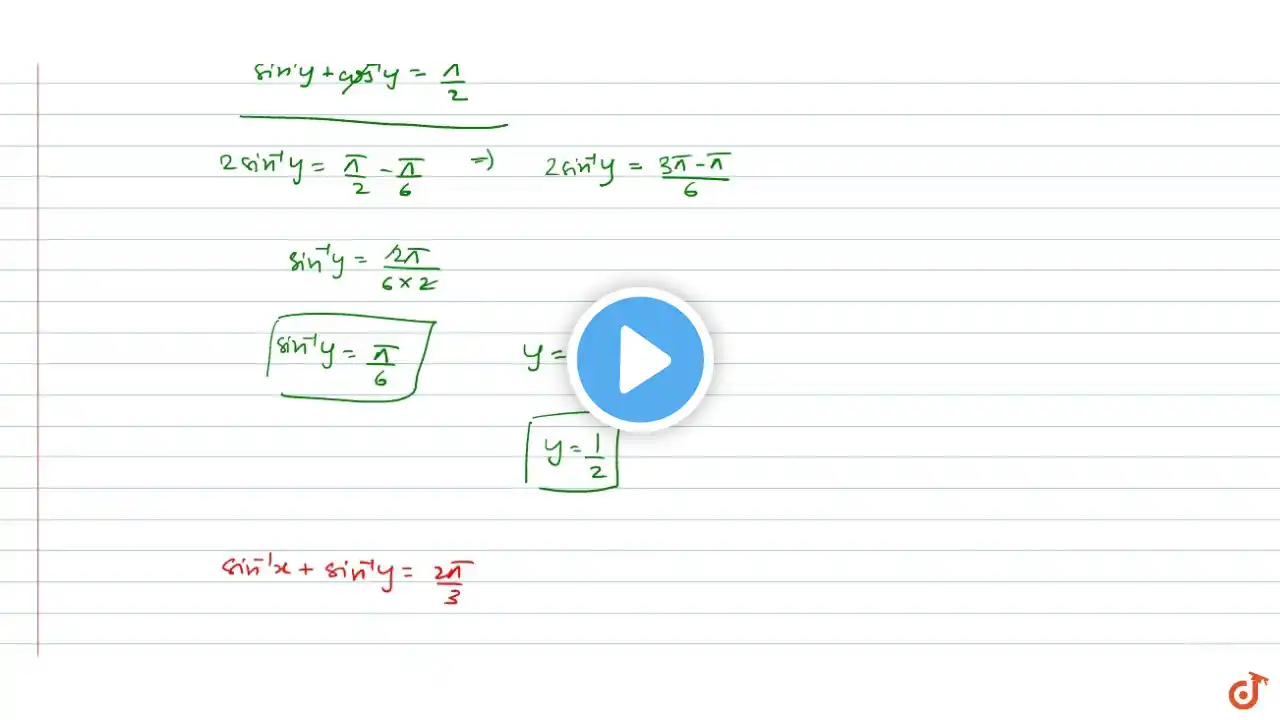 sin⁻¹y + cos⁻¹y = π/2
2 sin⁻¹y = π/2 - π/6 ⇒ 2 sin⁻¹y = 3π - π/6
sin⁻¹y = 2π/6 × 2
sin⁻¹y = π/6 y =
y = 1/2
sin⁻¹x + sin⁻¹y = 2π/3